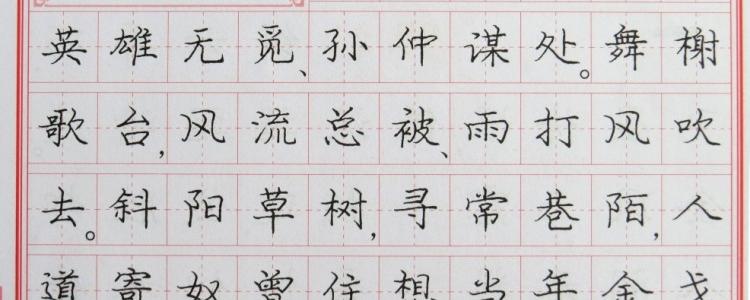 英雄无觅、孙仲谋处。舞榭
歌台,风流总被、雨打风吹
去。斜阳草树,寻常巷陌,人
道寄奴曾住想当年金戈